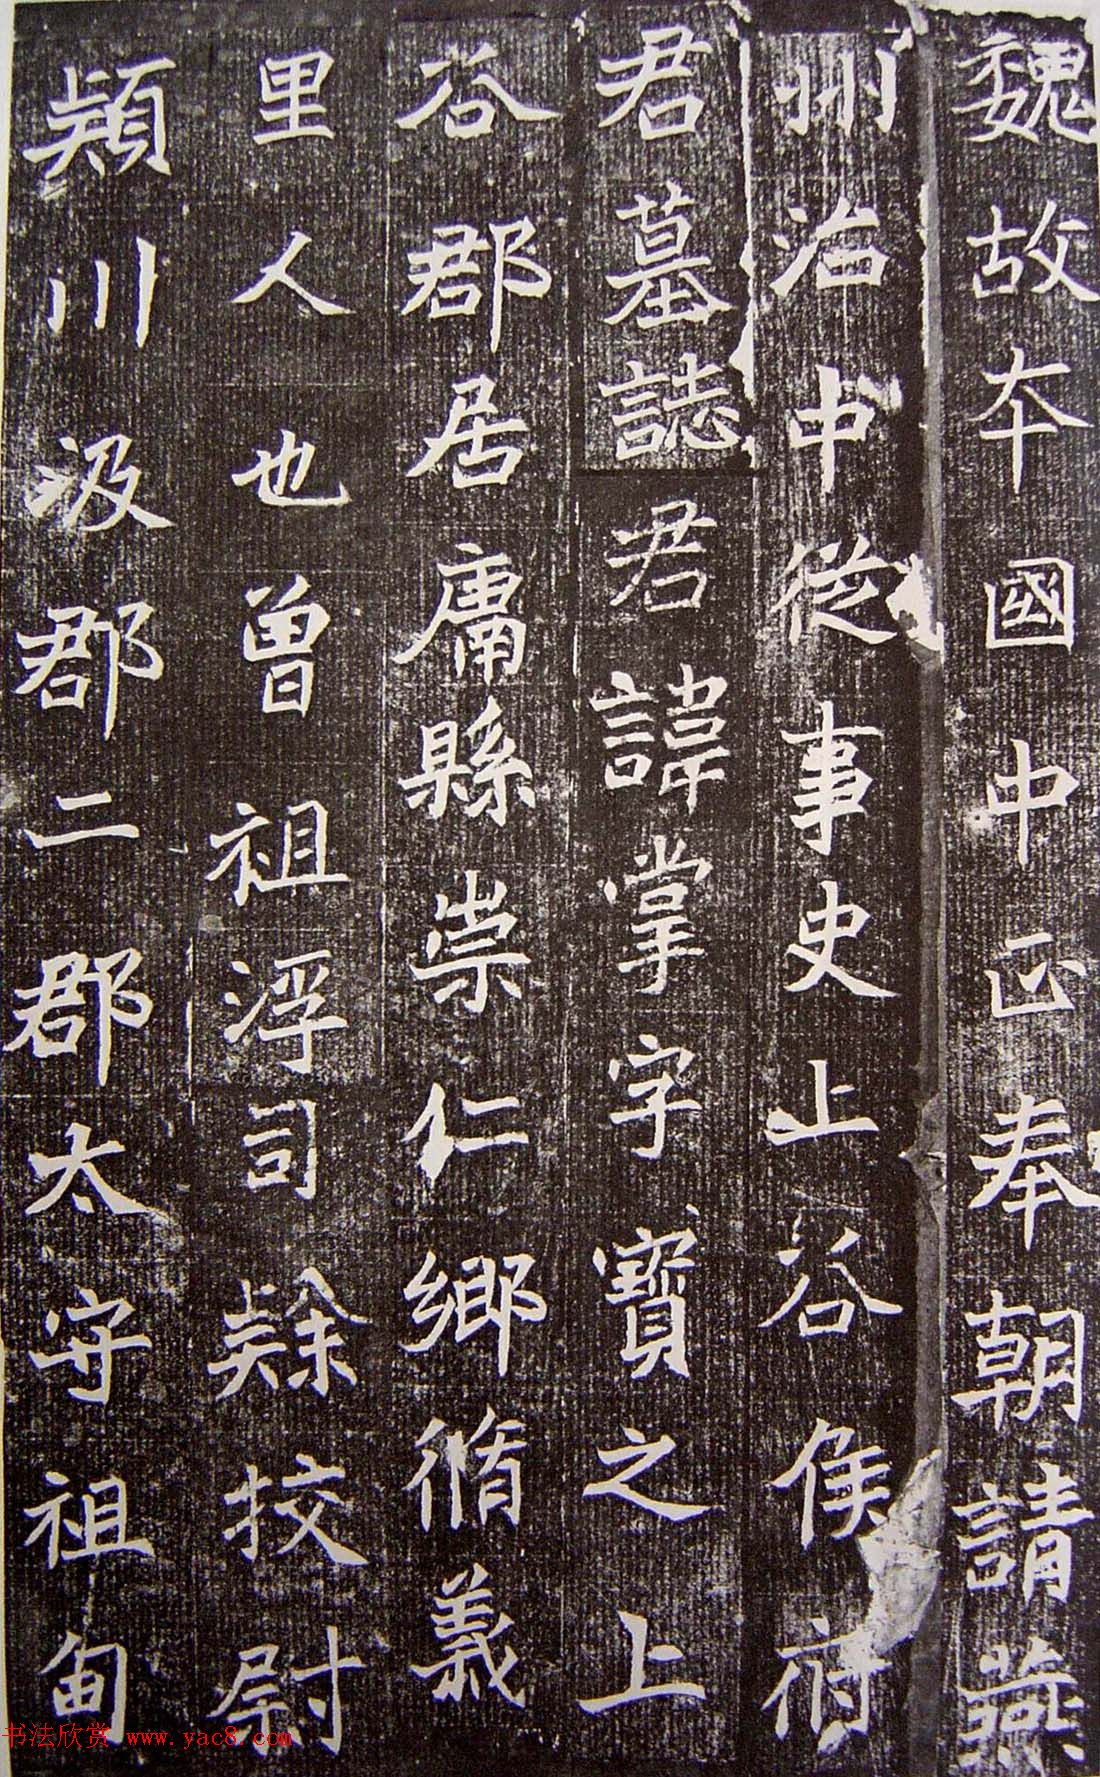 魏故本國中正奉朝請燕
州治中從事史上谷侯府
君墓誌君諱掌字寶之上
谷郡居庸縣崇仁鄉脩義
里人也曾祖浮司隸挍尉
潁川汲郡二郡太守祖甸
书法欣赏 www.yac8.com